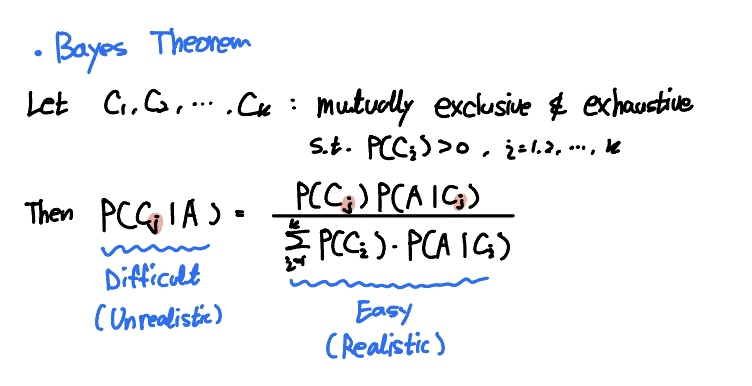 • Bayes Theorem
Let C₁, C₂, ⋯, Cₖ : mutually exclusive & exhaustive
s.t. P(Cᵢ) > 0, i = 1, 2, ⋯, k
Then P(Cⱼ | A) = P(Cⱼ) P(A | Cⱼ) / ∑ᵢ₌₁ᵏ P(Cᵢ) · P(A | Cᵢ)
Difficult
(Unrealistic)
Easy
(Realistic)